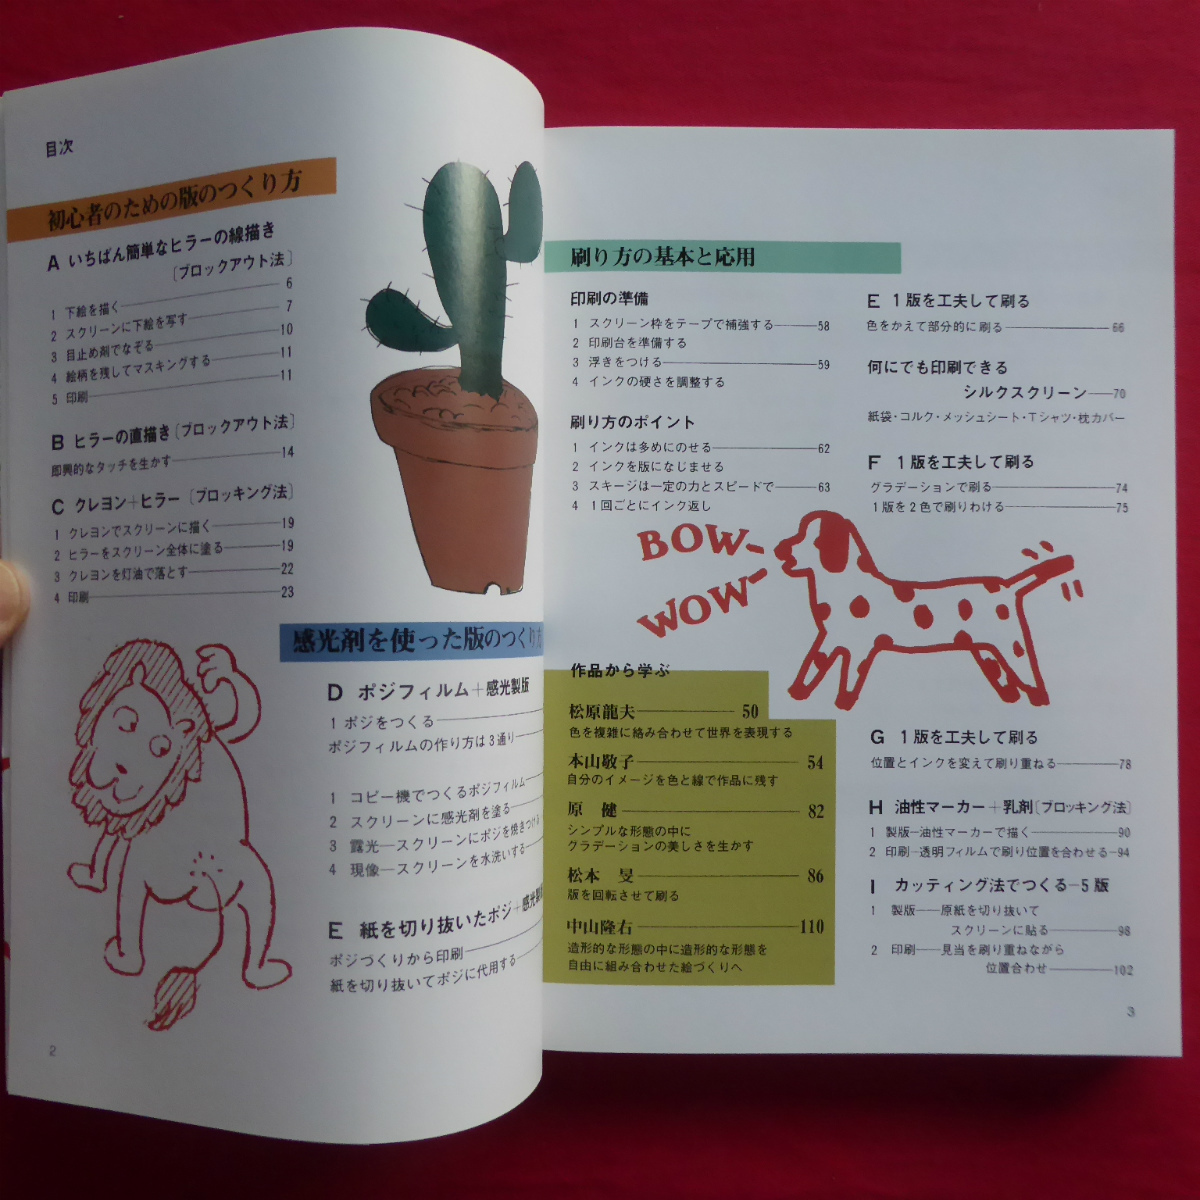 目次
初心者のための版のつくり方
A いちばん簡単なヒラーの線描き
〔ブロックアウト法〕
1 下絵を描く 6
2 スクリーンに下絵を写す 7
3 目止め剤でなぞる 10
4 絵柄を残してマスキングする 11
5 印刷 11
B ヒラーの直描き〔ブロックアウト法〕
即興的なタッチを生かす 14
C クレヨン＋ヒラー〔ブロッキング法〕
1 クレヨンでスクリーンに描く 19
2 ヒラーをスクリーン全体に塗る 19
3 クレヨンを灯油で落とす 22
4 印刷 23
感光剤を使った版のつくり方
D ポジフィルム＋感光製版
1 ポジをつくる
ポジフィルムの作り方は3通り
1 コピー機でつくるポジフィルム
2 スクリーンに感光剤を塗る
3 露光—スクリーンにポジを焼きつける
4 現像—スクリーンを水洗いする
E 紙を切り抜いたポジ＋感光製
ポジづくりから印刷
紙を切り抜いてポジに代用する
2
刷り方の基本と応用
印刷の準備
1 スクリーン枠をテープで補強する 58
2 印刷台を準備する
3 浮きをつける 59
4 インクの硬さを調整する
刷り方のポイント
1 インクは多めにのせる 62
2 インクを版になじませる
3 スキージは一定の力とスピードで 63
4 1回ごとにインク返し
BOW-
WOW-
作品から学ぶ
松原龍夫 50
色を複雑に絡み合わせて世界を表現する
本山敬子 54
自分のイメージを色と線で作品に残す
原 健 82
シンプルな形態の中に
グラデーションの美しさを生かす
松本 旻 86
版を回転させて刷る
中山隆右 110
造形的な形態の中に造形的な形態を
自由に組み合わせた絵づくりへ
E 1版を工夫して刷る
色をかえて部分的に刷る 66
何にでも印刷できる
シルクスクリーン—70
紙袋・コルク・メッシュシート・Tシャツ・枕カバー
F 1版を工夫して刷る
グラデーションで刷る 74
1版を2色で刷りわける 75
G 1版を工夫して刷る
位置とインクを変えて刷り重ねる 78
H 油性マーカー＋乳剤〔ブロッキング法〕
1 製版—油性マーカーで描く 90
2 印刷—透明フィルムで刷り位置を合わせる—94
I カッティング法でつくる—5版
1 製版—原紙を切り抜いて
スクリーンに貼る 98
2 印刷—見当を刷り重ねながら
位置合わせ 102
3